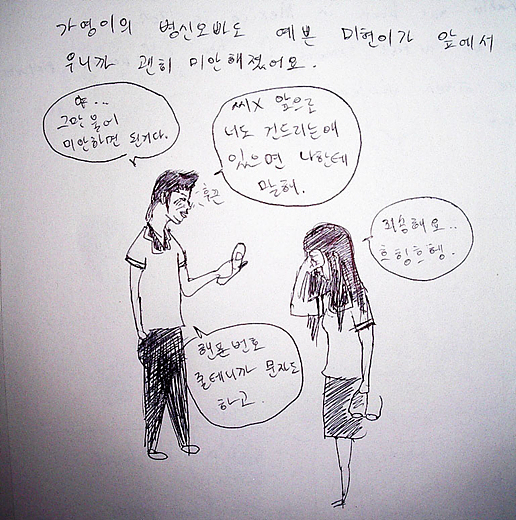 가영이의 병신오빠도 예쁜 미현이가 앞에서
우니까 괜히 미안해졌어요.
야...
그만 울어
미안하면 된거다.
씨X 앞으로
너도 건드리는애
있으면 나한테
말해.
후끈
죄송해요..
흐헝흐헹.
핸폰번호
줄테니까 문자도
하고.